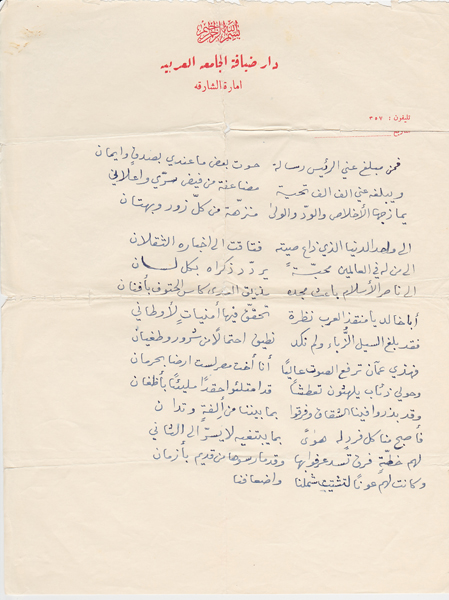 بسم الله الرحمن الرحيم
دار ضيافة الجامعه العربيه
امارة الشارقه
تليفون : ٣٥٧
تاريخ
فمن مبلغ عني الرئيس رسالة حوت بعض ما عندي بصدق وايمان
ويبلغه عني الف الف تحية مضاعفة من فيض سرّي واعلاني
يمازجها الأخلاص والودّ والولى منزهة من كل زور وبهتان
الى واحد الدنيا الذي ذاع صيته ففاقت الى اخباره الثقلان
الى من له في العالمين محبّة يردّد ذكراه بكل لسان
الى ناصر الأسلام باعث مجده يذيق العدى كاس الحتوف بأفنان
أيا خالد يا منقذ العرب نظرة تحقق فيها أمنيات لأوطاني
فقد بلغ السيل الزُّباء ولم نكد نطيق احتمالاً من شرور وطغيان
فهذي عمان ترفع الصوت عاليًا أنا أخت مصر لست ارضا بحرمان
وحولي ذئاب يلهثون تعطشًا قد امتلئوا حقدًا مليئًا بأضغان
وقد بذروا فينا الشقاق وفرقوا بما بيننا من أُلفةٍ وتدان
فأصبح منا كل فرد له هوىً بما يبتغيه لا يسرّ الى الثاني
لهم خطّة فرق تسد عرفوا بها وقد مارسوها من قديم بأزمان
وكانت لهم عونًا لتشتيت شملنا واضعافنا